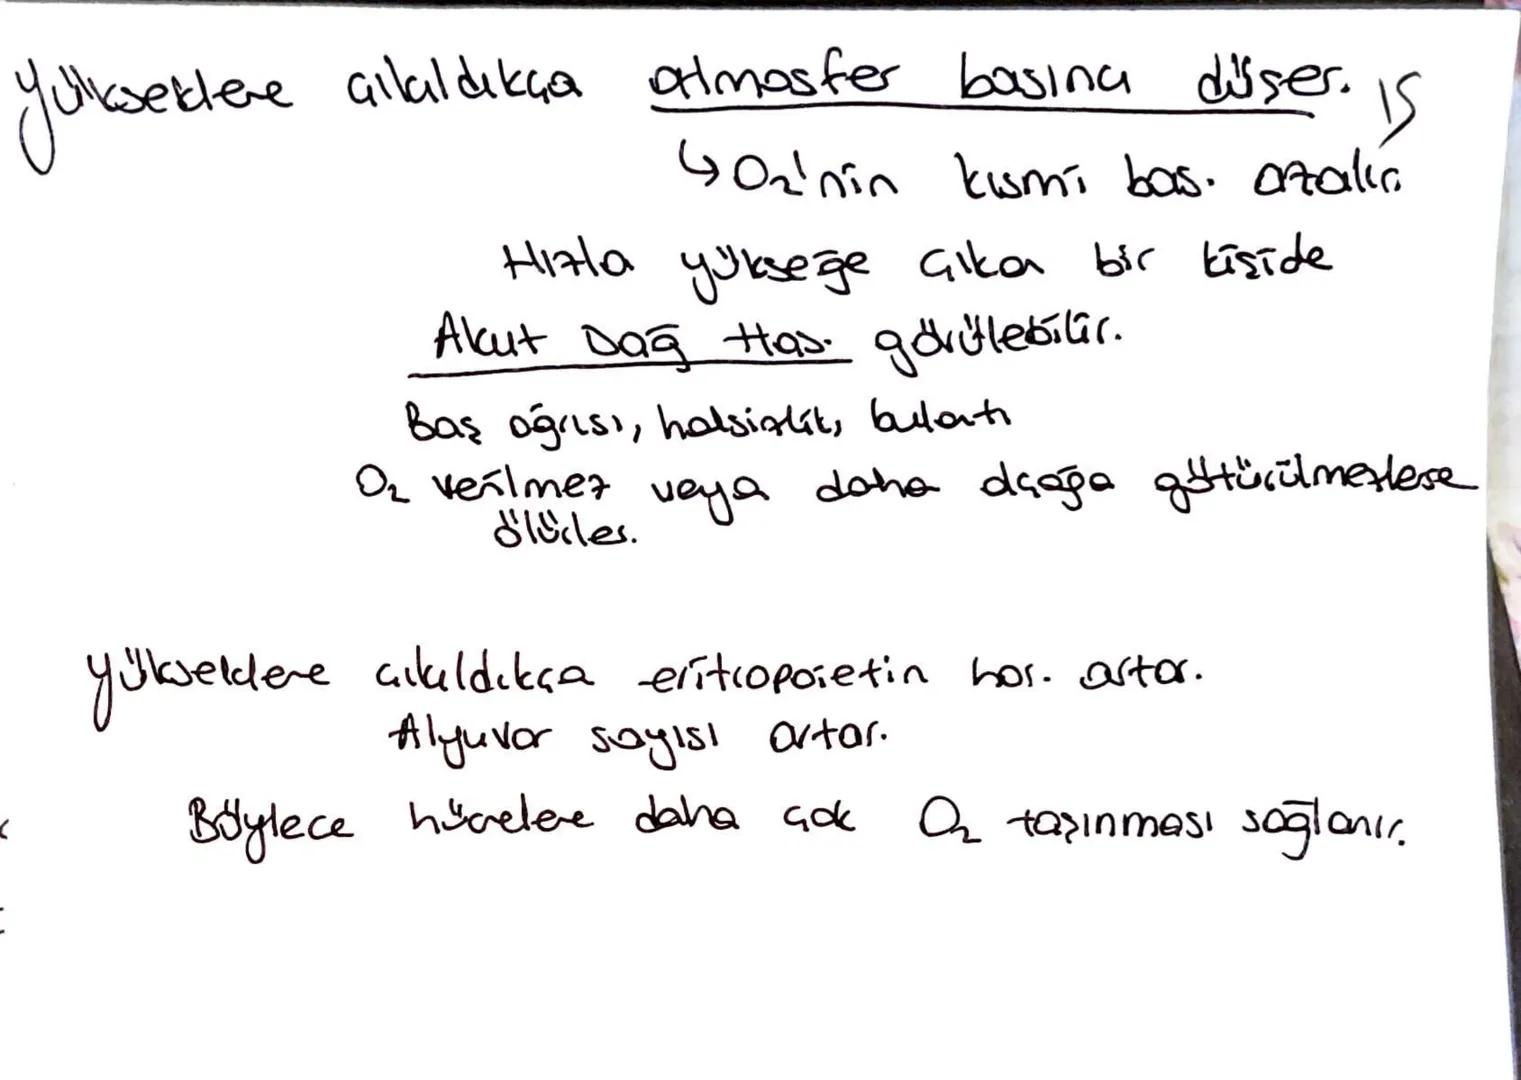 Yükseklere çıkıldıkça atmosfer basıncı düşer. 15
↳ O₂'nin kısmi bas. azalır.
Hızla yükseğe çıkan bir kişide
Akut Dağ Has. görülebilir.
Baş ağrısı, halsizlik, bulantı
O₂ verilmez veya daha aşağa götürülmezlerse
ölürler.
yükseklere çıkıldıkça eritropoietin hor. artar.
Alyuvar sayısı artar.
Böylece hücrelere daha çok O₂ taşınması sağlanır.